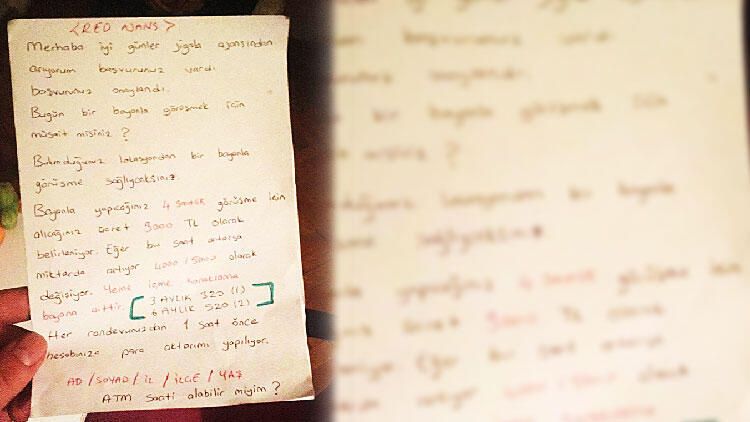 <RED AJANS>
Merhaba iyi günler jigolo ajansından
arıyorum başvurunuz vardı
başvurunuz onaylandı.
Bugün bir bayanla görüşmek için
müsait misiniz ?
Bulunduğunuz lokasyondan bir bayanla
görüşme sağlıycaksınız.
Bayanla yapıcağınız 4 saatlik görüşme için
alıcağınız ücret 3000 TL olarak
belirleniyor. Eğer bu saat artarsa
miktarda artıyor 4000 / 5000 olarak
değişiyor. Yeme içme konaklama
bayana aittir.
[ 3 AYLIK 320 (1)
6 AYLIK 520 (2) ]
Her randevunuzdan 1 saat önce
hesabınıza para aktarımı yapılıyor.
AD / SOYAD / İL / İLÇE / YAŞ
ATM saati alabilir miyim ?